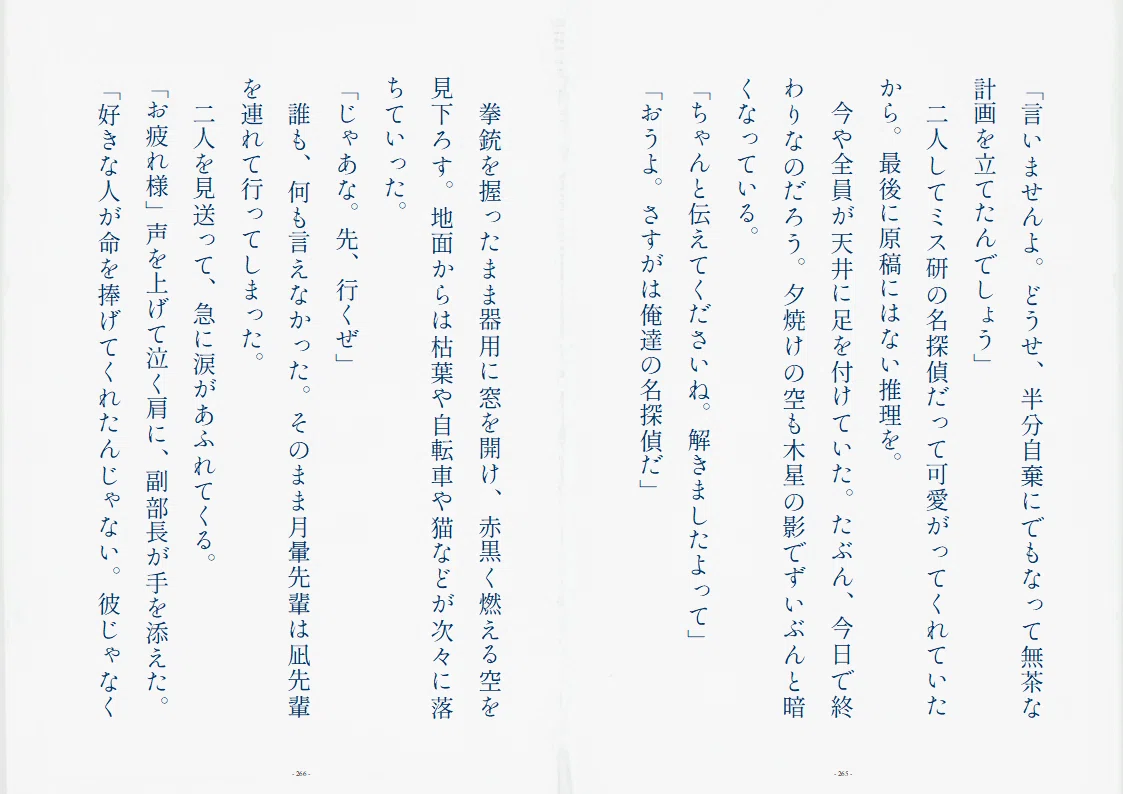 「言いませんよ。どうせ、半分自棄にでもなって無茶な
計画を立てたんでしょう」
二人してミス研の名探偵だって可愛がってくれていた
から。最後に原稿にはない推理を。
今や全員が天井に足を付けていた。たぶん、今日で終
わりなのだろう。夕焼けの空も木星の影でずいぶんと暗
くなっている。
「ちゃんと伝えてくださいね。解きましたよって」
「おうよ。さすがは俺達の名探偵だ」
- 265 -
拳銃を握ったまま器用に窓を開け、赤黒く燃える空を
見下ろす。地面からは枯葉や自転車や猫などが次々に落
ちていった。
「じゃあな。先、行くぜ」
誰も、何も言えなかった。そのまま月暈先輩は凪先輩
を連れて行ってしまった。
二人を見送って、急に涙があふれてくる。
「お疲れ様」声を上げて泣く肩に、副部長が手を添えた。
「好きな人が命を捧げてくれたんじゃない。彼じゃなく
- 266 -